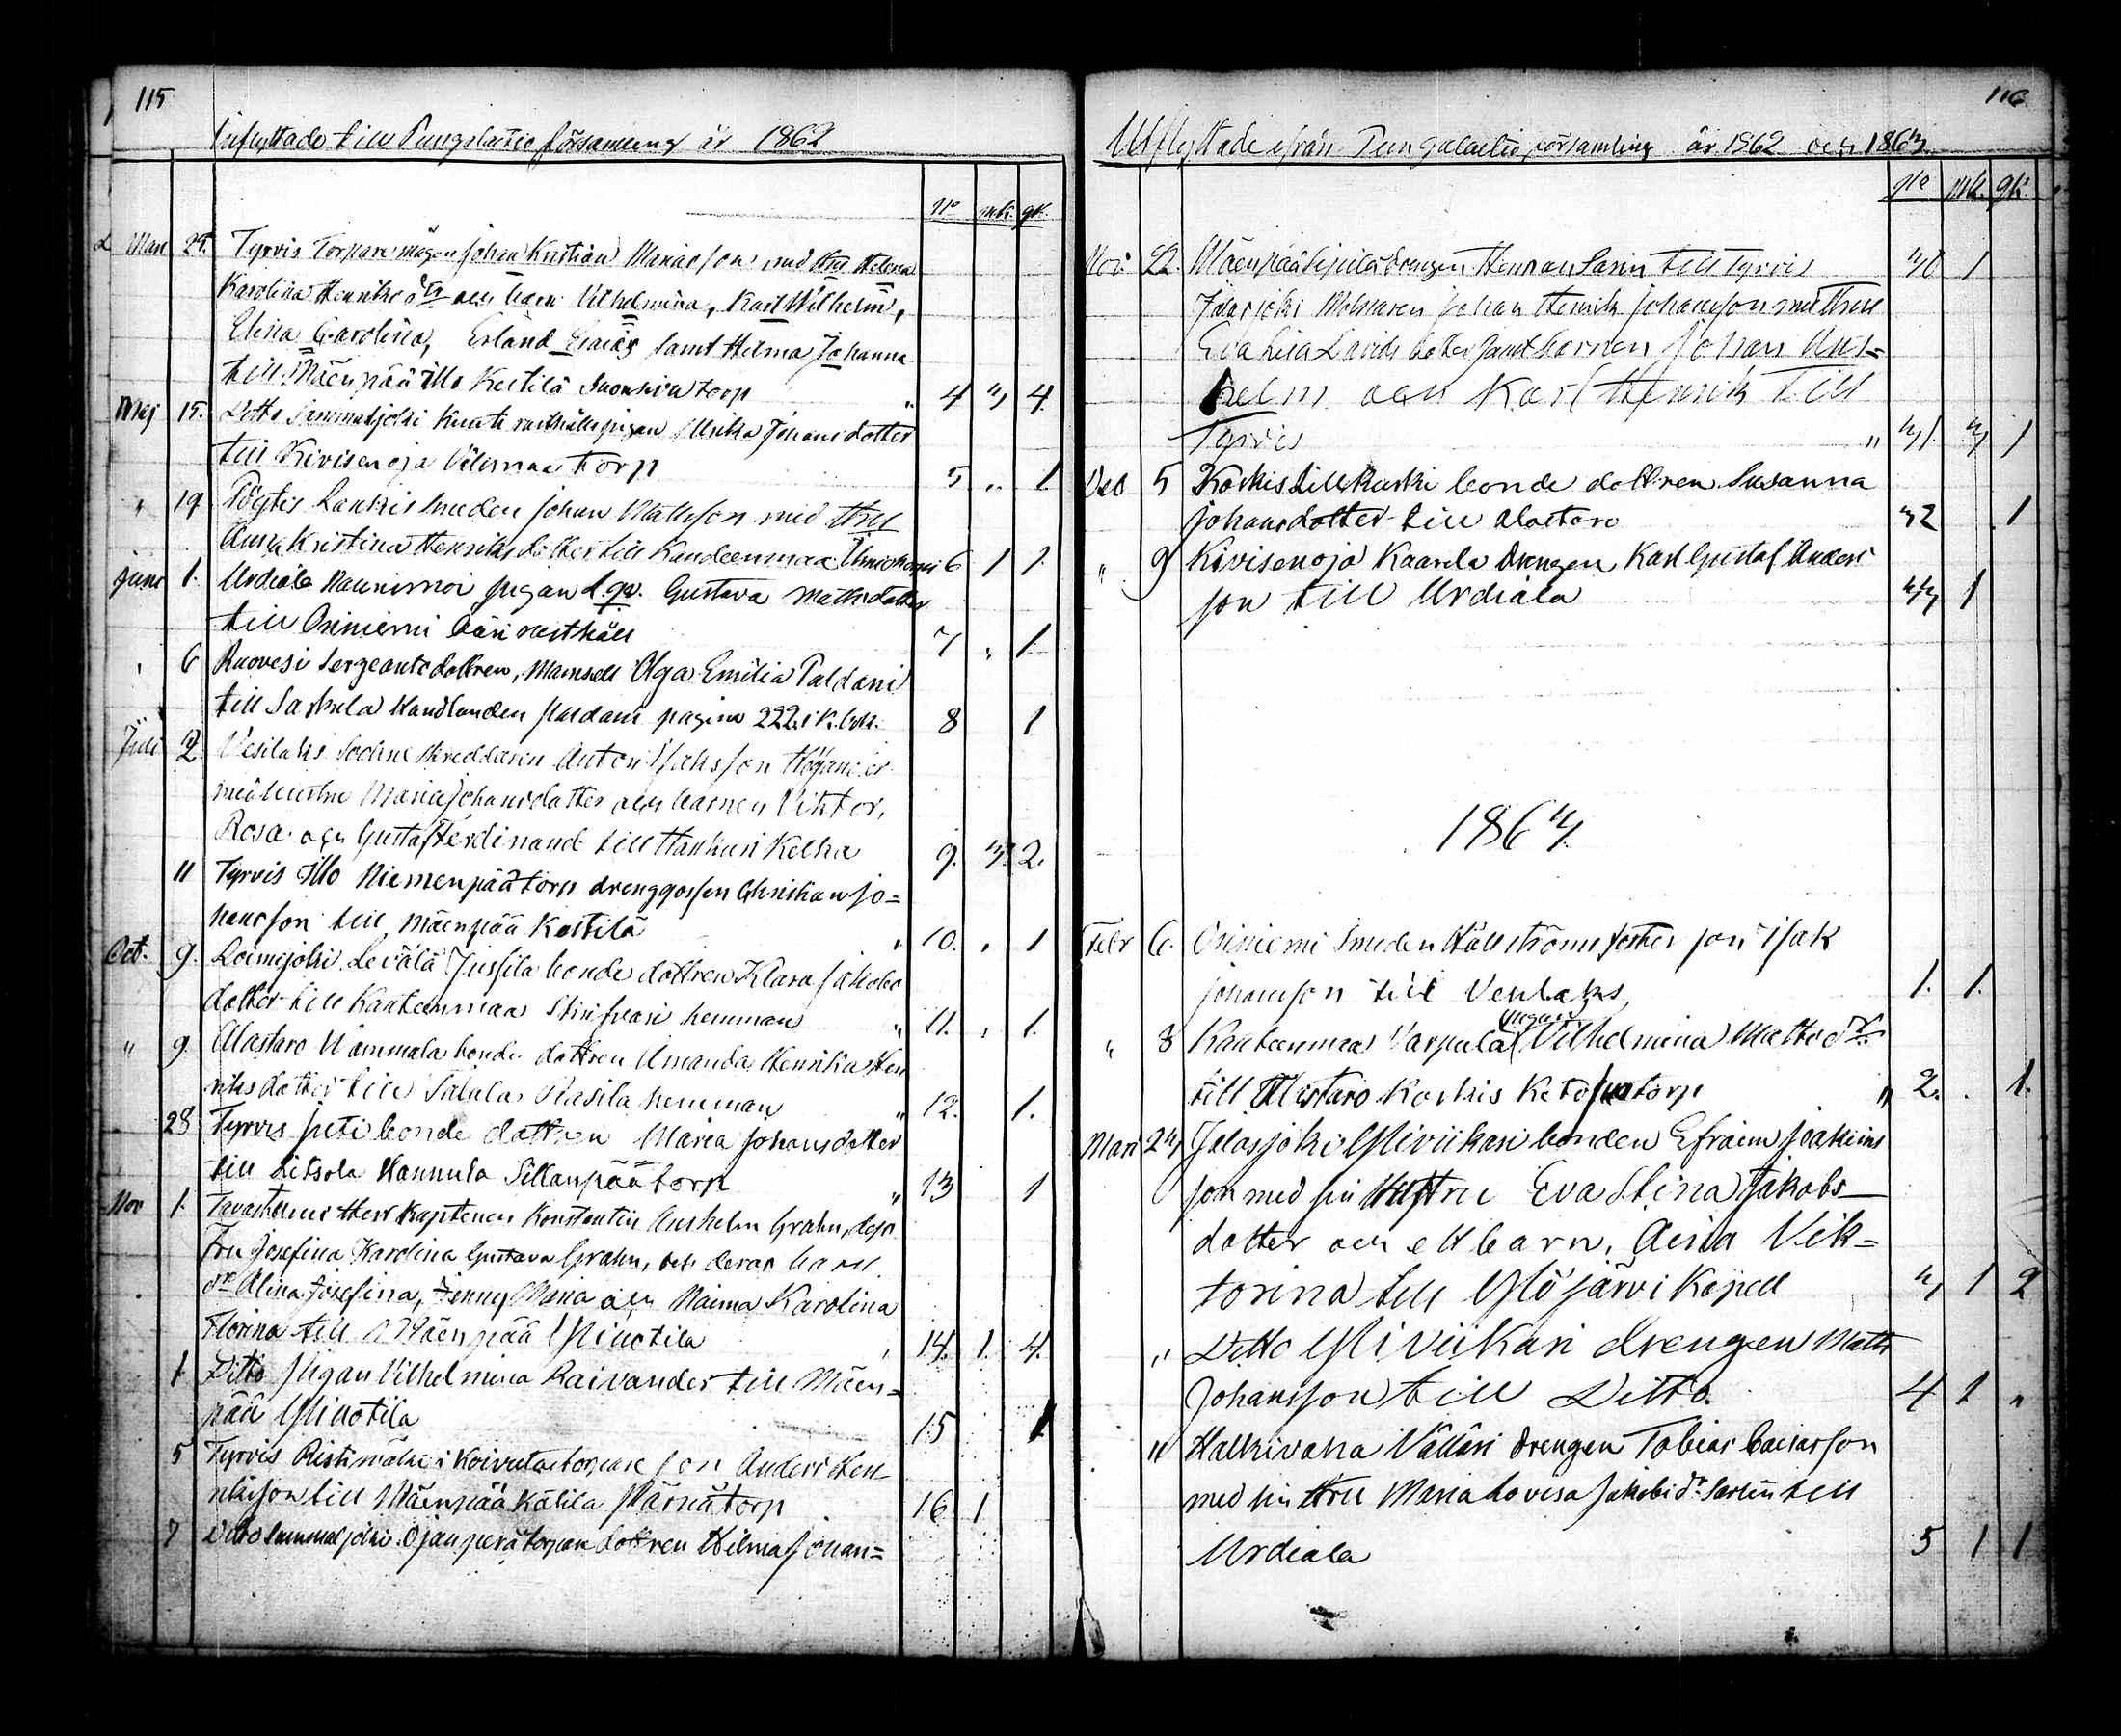 115
Inflyttade till Pungalaitio församling år 1862
No mk. qk.
Mars 25. Tyrvis Torpare mågen Johan Kristian Mariasson med Hru Helena
Karolina Henriks dr och barn Vilhelmina, Karl Wilhelm,
Elina Carolina, Erland Esaias samt Hilma Johanna
till Mäenpää Illo Kestilä torp " 4 3 4.
Maj 15. Ditto Sammaljoki rusthålls pigan Ulrika Johansdotter
till Kivisenoja torp 5 " 1
" 19 Pöytis Lankis Smeden Johan Mattsson med Hru
Anna Kristina Henriksdotter till Kanteenmaa 6 1 1.
Juni 1. Urdiala Naunimoi pigan L. qv. Gustava Mattsdotter
till Oriniemi rusthåll 7 " 1
" 6 Ruovesi Sergeants dottren, Mamsell Olga Emilia Paldani
till Sarkula Handlanden Paldani pagina 222 i K. bok. 8 1
Juli 2. Vesilaks Sockne skreddaren Anton Isaksson
med hustru Maria Johansdotter och barnen Viktor,
Rosa och Gustaf Ferdinand till Hankuri Kelha 9. 3. 2.
11 Tyrvis Illo Niemenpää torp drenggossen Christian Jo=
hansson till Mäenpää Kestilä " 10. " 1
Oct. 9. Loimijoki Levälä Jussila bonde dottren Klara Jakobs
dotter till Kanteenmaa hemman " 11. " 1.
" 9 Alastaro Wammala bonde dottren Amanda Henrika Hen
riksdotter till Talala Rasila hemman " 12. 1.
28 Tyrvis bonde dottren Maria Johansdotter
till Liitsola Hannula Sillanpää torp " 13 1
Nov 1. Tavastehus Herr Kaptenen Konstantin Anshelm Grahn, dess
Fru Josefina Karolina Gustava Grahn, och deras barn
dr Alina Josefina, Jenny Maria och Naima Karolina
Florina till Mäenpää Ylinotila " 14. 1. 4.
1 Ditto Pigan Vilhelmina Raivander till Mäen=
pää Ylinotila 15 1
5 Tyrvis Ristimäki Koivuta torpare son Anders Hen
riksson till Mäenpää Kätila torp 16 1
7 Ditto Sammaljoki Ojanperä torpare dottren Hilma Johan=
116
Utflyttade ifrån Pungalaitio församling år 1862 och 1863.
No Mk. qk.
Nov. 22. Mäenpää Sipilä drengen Herman Sarin till Tyrvis 30 1
Jalasjoki Johan Henrik Johansson med Hru
Eva Lisa Davids dotter samt barnen Johan Ans=
helm och Karl Henrik till
Tyrvis " 31. 3 1
Dec 5 Korkis Lill Kurki bonde dottren Susanna
Johansdotter till Alastaro 32 1
" 9 Kivisenoja Kaarela Drengen Karl Gustaf Anders
son till Urdiala 33 1
1863.
Febr 6. Oriniemi Smeden Hällströms foster son Isak
Johansson till Venlaks 1. 1.
" 8 Kanteenmaa Varpula pigan Vilhelmina Matts dr
till Alastaro Korkis torp " 2. . 1.
Mars 23 Jalasjoki Yliviikari bonden Efraim Joakims
son med sin Hustru Eva Stina Jakobs
dotter och ett barn, Aina Vik=
torina till Ylöjärvi Kapell 3 1 2
" Ditto Yliviikari drengen Matts
Johansson till Ditto. 4 1 "
" Halkivaha Välläri drengen Tobias Caesarson
med sin Hru Maria Lovisa Jakobs dr Sarlin till
Urdiala 5 1 1